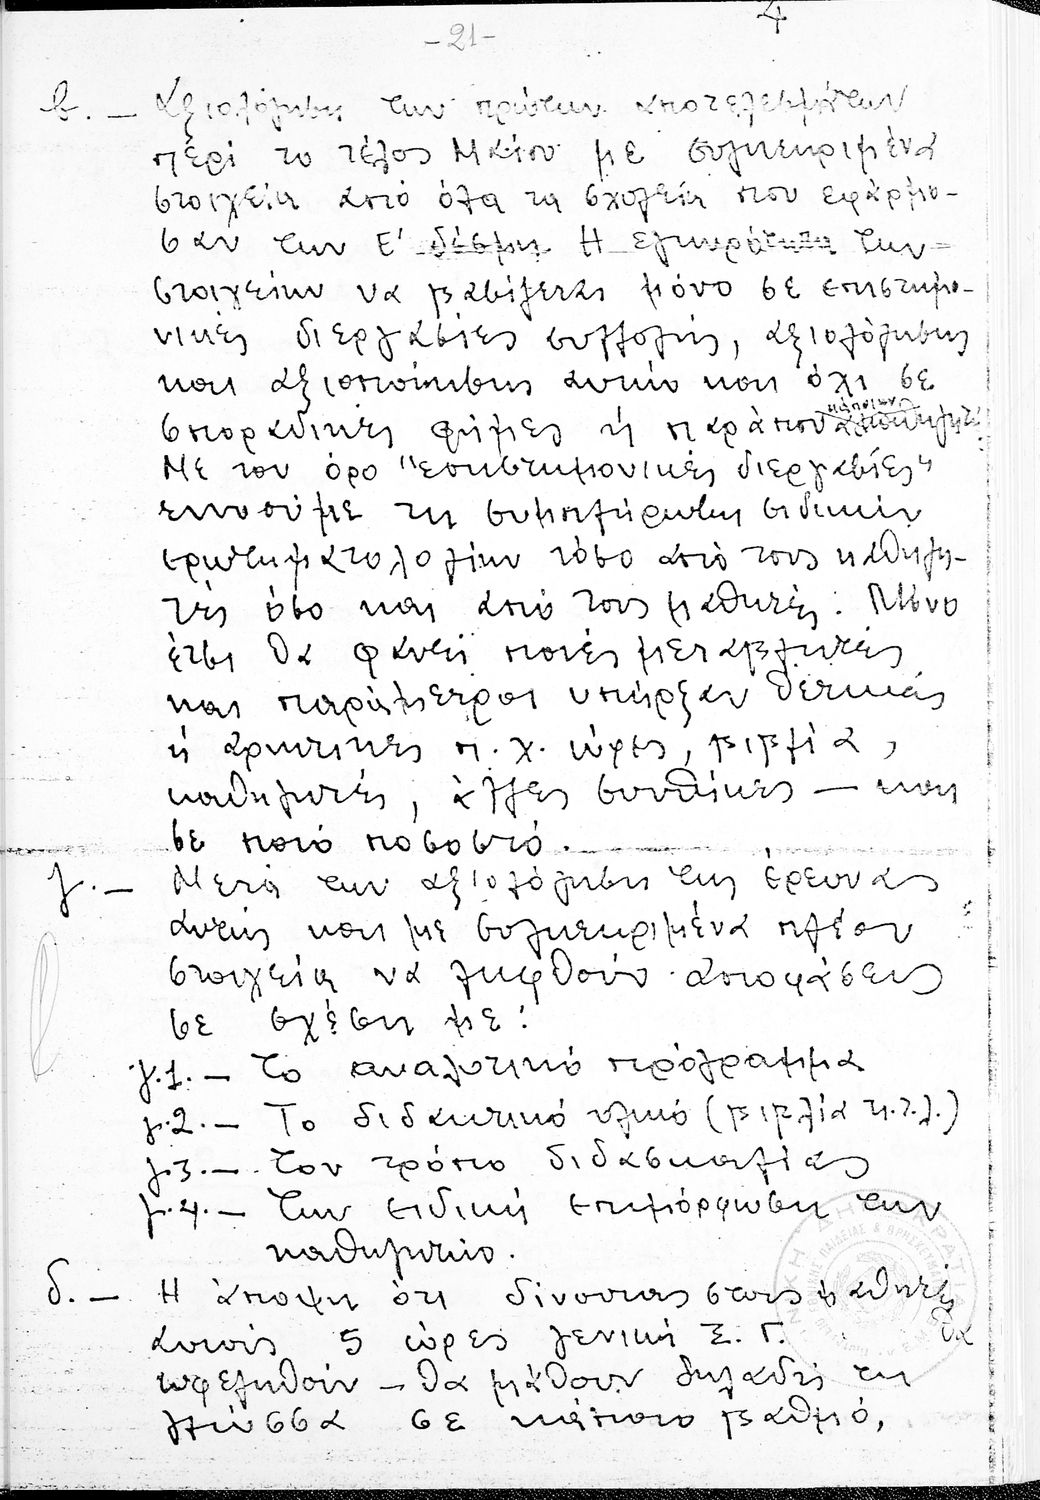 4
-21-
β.- Αξιολόγηση των πρώτων αποτελεσμάτων
περί το τέλος Μαΐου με συγκεκριμένα
στοιχεία από όλα τα σχολεία που εφάρμο-
σαν την Ε' δέσμη. Η εγκυρότητα των
στοιχείων να βασίζεται μόνο σε επιστημο-
νικές διεργασίες συλλογής, αξιολόγησης
και αξιοποίησης αυτών και όχι σε
σποραδικές φήμες ή παράπονα κάποιων καθηγητών.
Με τον όρο "επιστημονικές διεργασίες"
εννοούμε τη συμπλήρωση ειδικών
ερωτηματολογίων τόσο από τους καθηγη-
τές όσο και από τους μαθητές. Μόνο
έτσι θα φανεί ποιές μεταβλητές
και παράμετροι υπήρξαν θετικές
ή αρνητικές π.χ. ώρες, βιβλία,
καθηγητές, άλλες συνθήκες — και
σε ποιό ποσοστό.
γ.- Μετά την αξιολόγηση της έρευνας
αυτής και με συγκεκριμένα πλέον
στοιχεία να ληφθούν αποφάσεις
σε σχέση με:
γ.1.- Το αναλυτικό πρόγραμμα
γ.2.- Το διδακτικό υλικό (βιβλία κ.τ.λ.)
γ.3.- Τον τρόπο διδασκαλίας
γ.4.- Την ειδική επιμόρφωση των
καθηγητών.
δ.- Η άποψη ότι δίνοντας στους μαθητές
αυτούς 5 ώρες γενική Ξ.Γ. θα
ωφεληθούν — θα μάθουν δηλαδή τη
γλώσσα σε κάποιο βαθμό,